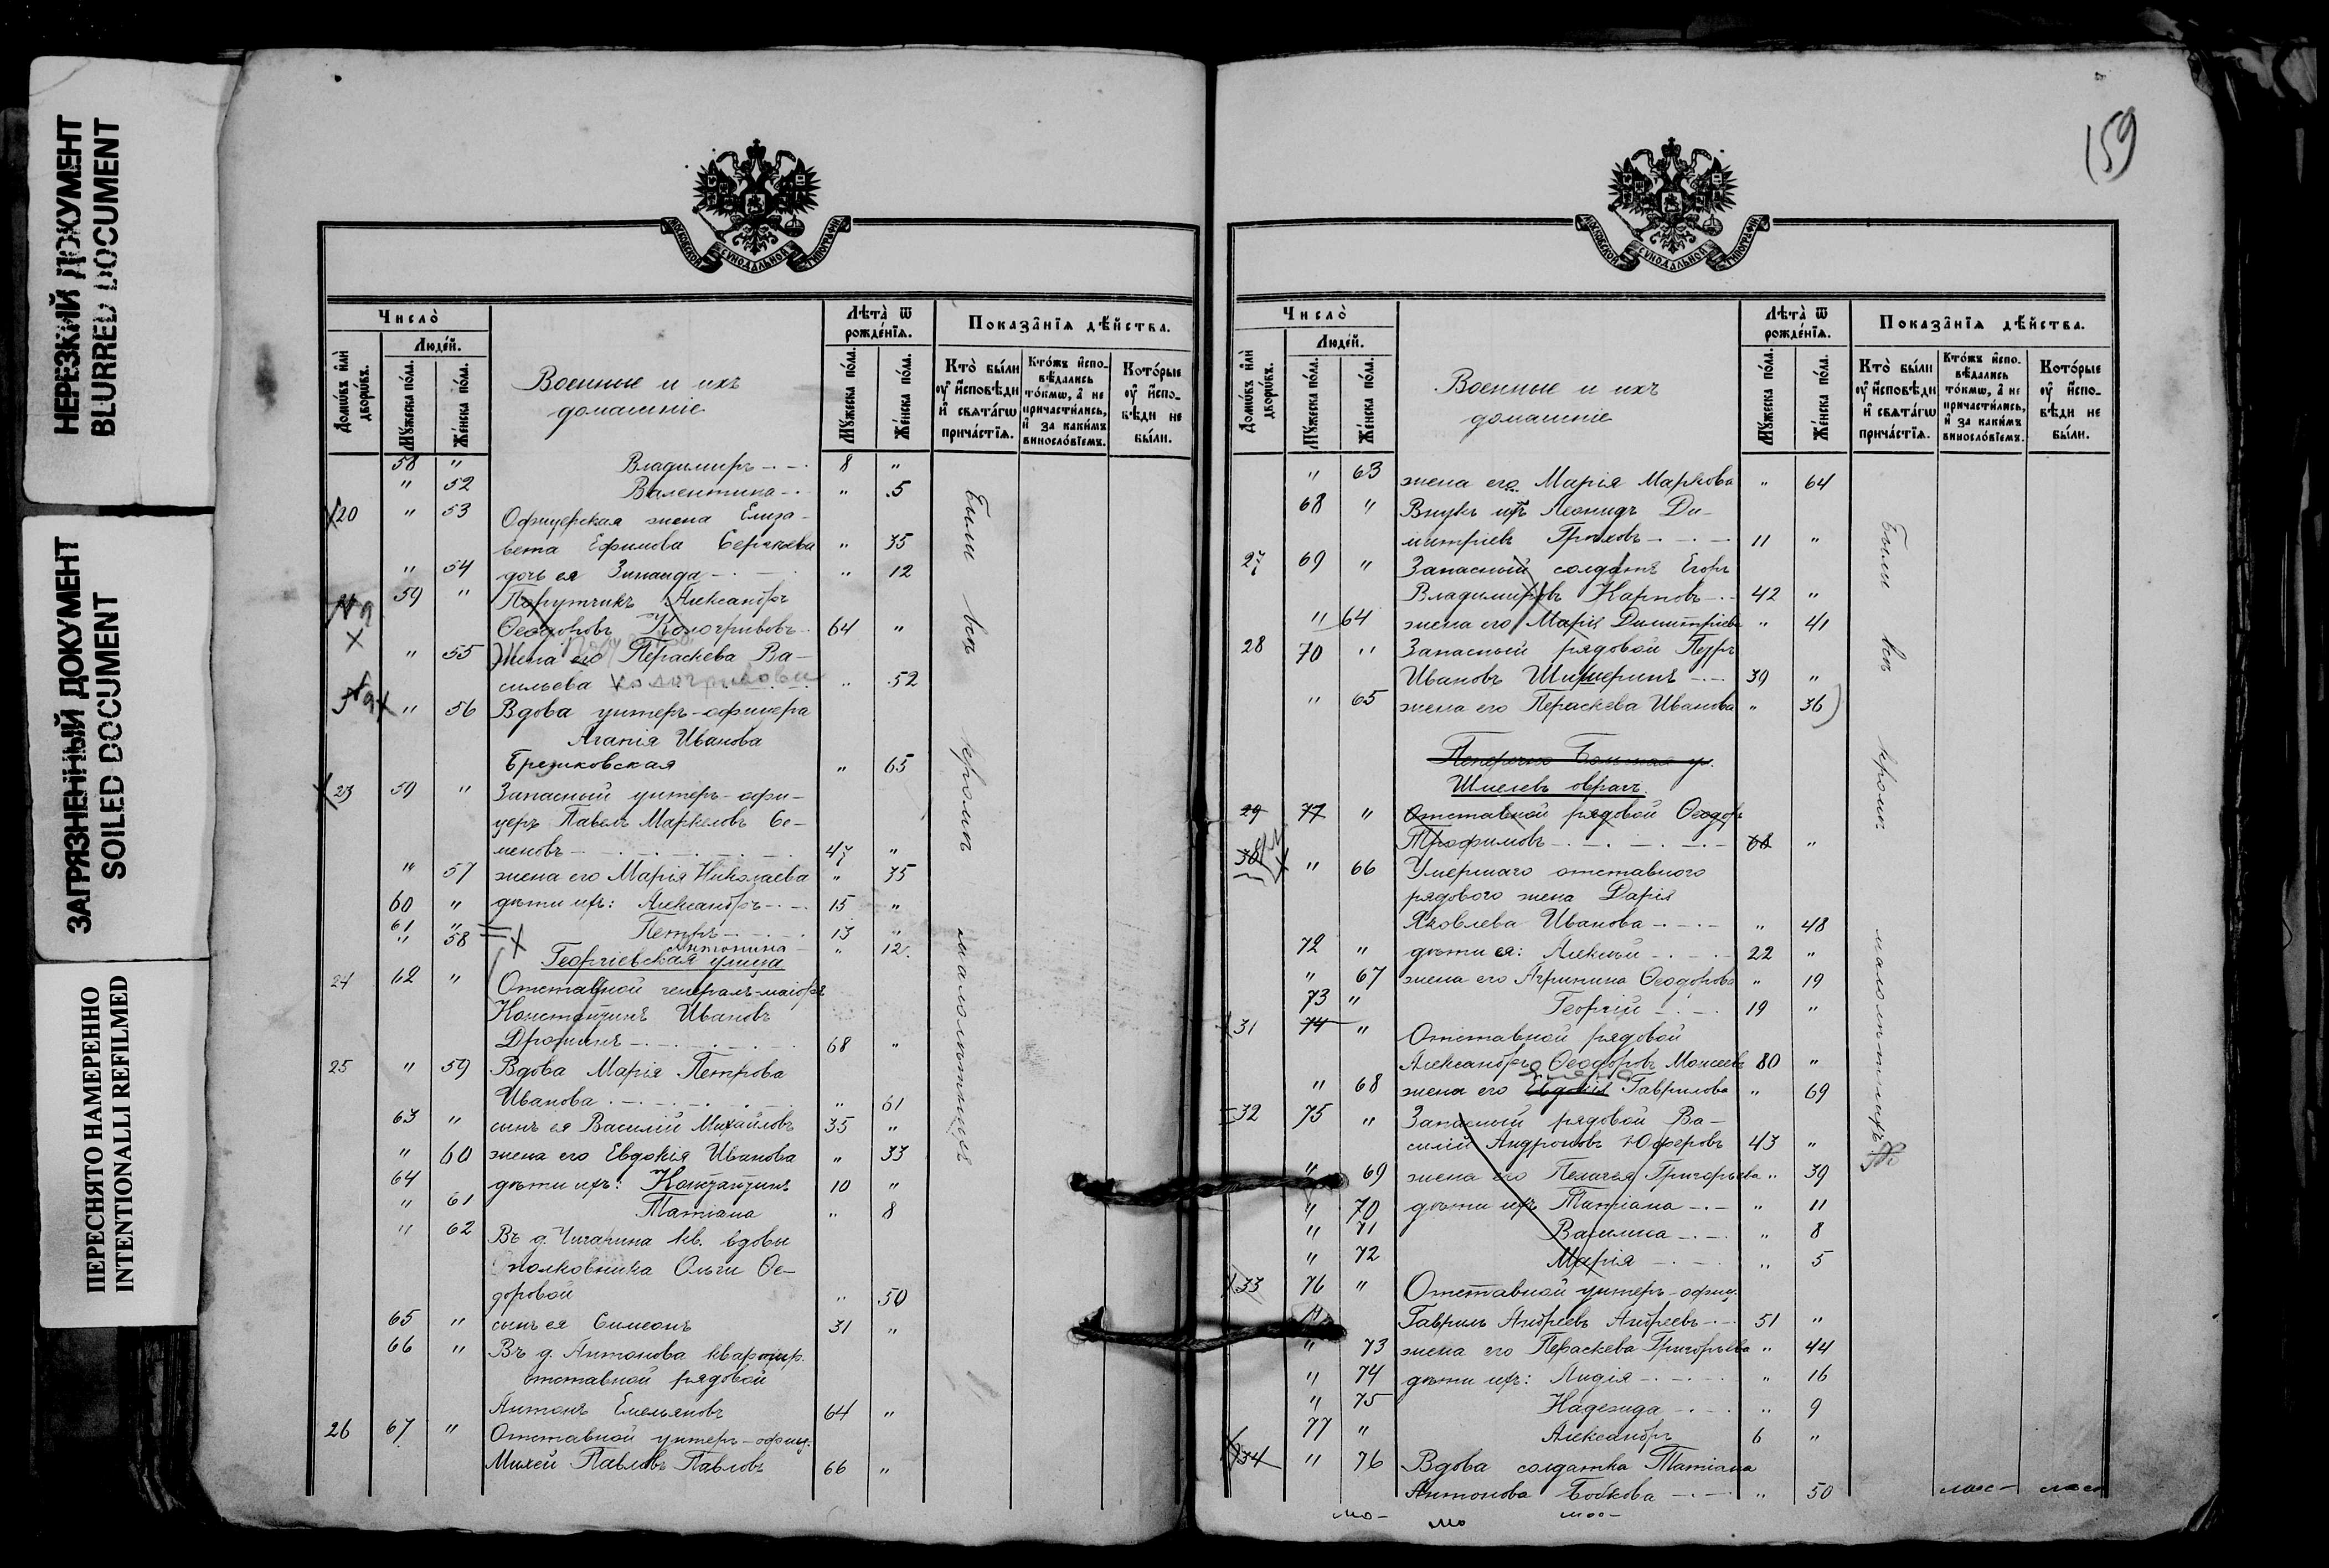 НЕРЕЗКИЙ ДОКУМЕНТ
BLURRED DOCUMENT
ЗАГРЯЗНЕННЫЙ ДОКУМЕНТ
SOILED DOCUMENT
ПЕРЕСНЯТО НАМЕРЕННО
INTENTIONALLI REFILMED
МОСКОВСКОЙ СУНОДАЛЬНОЙ ТИПОГРАФІИ
Число̀
Людéй.
Домѡ́въ и҆лѝ дворѡ́въ.
Мꙋ́жеска по́ла.
Же́нска по́ла.
Военные и ихъ
домашніе
Лѣта̀ ѿ рожде́нїѧ.
Мꙋ́жеска по́ла.
Же́нска по́ла.
Показа̑нїѧ дѣ́йства.
Кто̀ бы́ли ᲂу҆ и҆сповѣди и҆ свѧта́гѡ прича́стїѧ.
Кто́жъ и҆спо-вѣдались то́кмѡ, а҆ не причасти́лись, и҆ за каки́мъ винослѻ́вїемъ.
Кото́рые ᲂу҆ и҆спо-вѣди не бы́ли.
58 " Владимиръ 8 "
" 52 Валентина " 5
20 " 53 Офицерская жена Елиза-
вета Ефимова Сергеева " 35
" 54 дочь ея Зинаида " 12
59 " Порутчикъ Александръ
Ѳеодоровъ Кологривовъ 64 "
" 55 Жена его Параскева Ва-
сильева Кологривова " 52
" 56 Вдова унтеръ-офицера
Агапія Иванова
Брешковская " 65
23 59 " Запасный унтеръ-офи-
церъ Павелъ Маркеловъ Се-
меновъ 47 "
" 57 жена его Марія Николаева " 35
60 " дѣти ихъ: Александръ 15 "
61 " Петръ 13 "
" 58 Антонина " 12
Георгіевская улица
24 62 " Отставной генералъ-маіоръ
Константинъ Ивановъ
68 "
25 " 59 Вдова Марія Петрова
Иванова " 61
63 " сынъ ея Василій Михайловъ 35 "
" 60 жена его Евдокія Иванова " 33
64 " дѣти ихъ: Константинъ 10 "
" 61 Татіана " 8
" 62 Въ д. Чигарина кв. вдовы
полковника Ольги Ѳе-
доровой " 50
65 " сынъ ея Симеонъ 31 "
66 " Въ д. Антонова квартир.
отставной рядовой
Антонъ Емельяновъ 64 "
26 67 " Отставной унтеръ-офиц.
Михей Павловъ Павловъ 66 "
Были всѣ кромѣ малолѣтнихъ
159
МОСКОВСКОЙ СУНОДАЛЬНОЙ ТИПОГРАФІИ
Число̀
Людéй.
Домѡ́въ и҆лѝ дворѡ́въ.
Мꙋ́жеска по́ла.
Же́нска по́ла.
Военные и ихъ
домашніе
Лѣта̀ ѿ рожде́нїѧ.
Мꙋ́жеска по́ла.
Же́нска по́ла.
Показа̑нїѧ дѣ́йства.
Кто̀ бы́ли ᲂу҆ и҆сповѣди и҆ свѧта́гѡ прича́стїѧ.
Кто́жъ и҆спо-вѣдались то́кмѡ, а҆ не причасти́лись, и҆ за каки́мъ винослѻ́вїемъ.
Кото́рые ᲂу҆ и҆спо-вѣди не бы́ли.
" 63 жена его Марія Маркова " 64
68 " Внукъ ихъ Леонидъ Ди-
митріевъ Грѣховъ 11 "
27 69 " Запасный солдатъ Егоръ
Владимировъ Карповъ 42 "
" 64 жена его Марія Димитріева " 41
28 70 " Запасный рядовой Петръ
Ивановъ Шишеринъ 39 "
" 65 жена его Параскева Иванова " 36
Поперечно Большая ул.
Шмелевъ оврагъ
29 77 " Отставной рядовой Ѳеодоръ
Трофимовъ 68 "
30 " 66 Умершаго отставного
рядового жена Дарія
Яковлева Иванова " 48
72 " дѣти ея: Алексѣй 22 "
" 67 жена его Агрипина Ѳеодорова " 19
73 " Георгій 19 "
31 74 " Отставной рядовой
Александръ Ѳеодоровъ Моисеевъ 80 "
" 68 жена его Евдокія Гаврилова " 69
32 75 " Запасный рядовой Ва-
силій Андроновъ Юферовъ 43 "
" 69 жена его Пелагея Григорьева " 39
" 70 дѣти ихъ Татіана " 11
" 71 Василиса " 8
" 72 Марія " 5
33 76 " Отставной унтеръ-офиц.
Гаврилъ Андреевъ Андреевъ 51 "
" 73 жена его Параскева Григорьева " 44
" 74 дѣти ихъ: Лидія " 16
" 75 Надежда " 9
77 " Александръ 6 "
34 " 76 Вдова солдатка Татіана
Антонова Бобкова " 50
Были всѣ кромѣ малолѣтнихъ